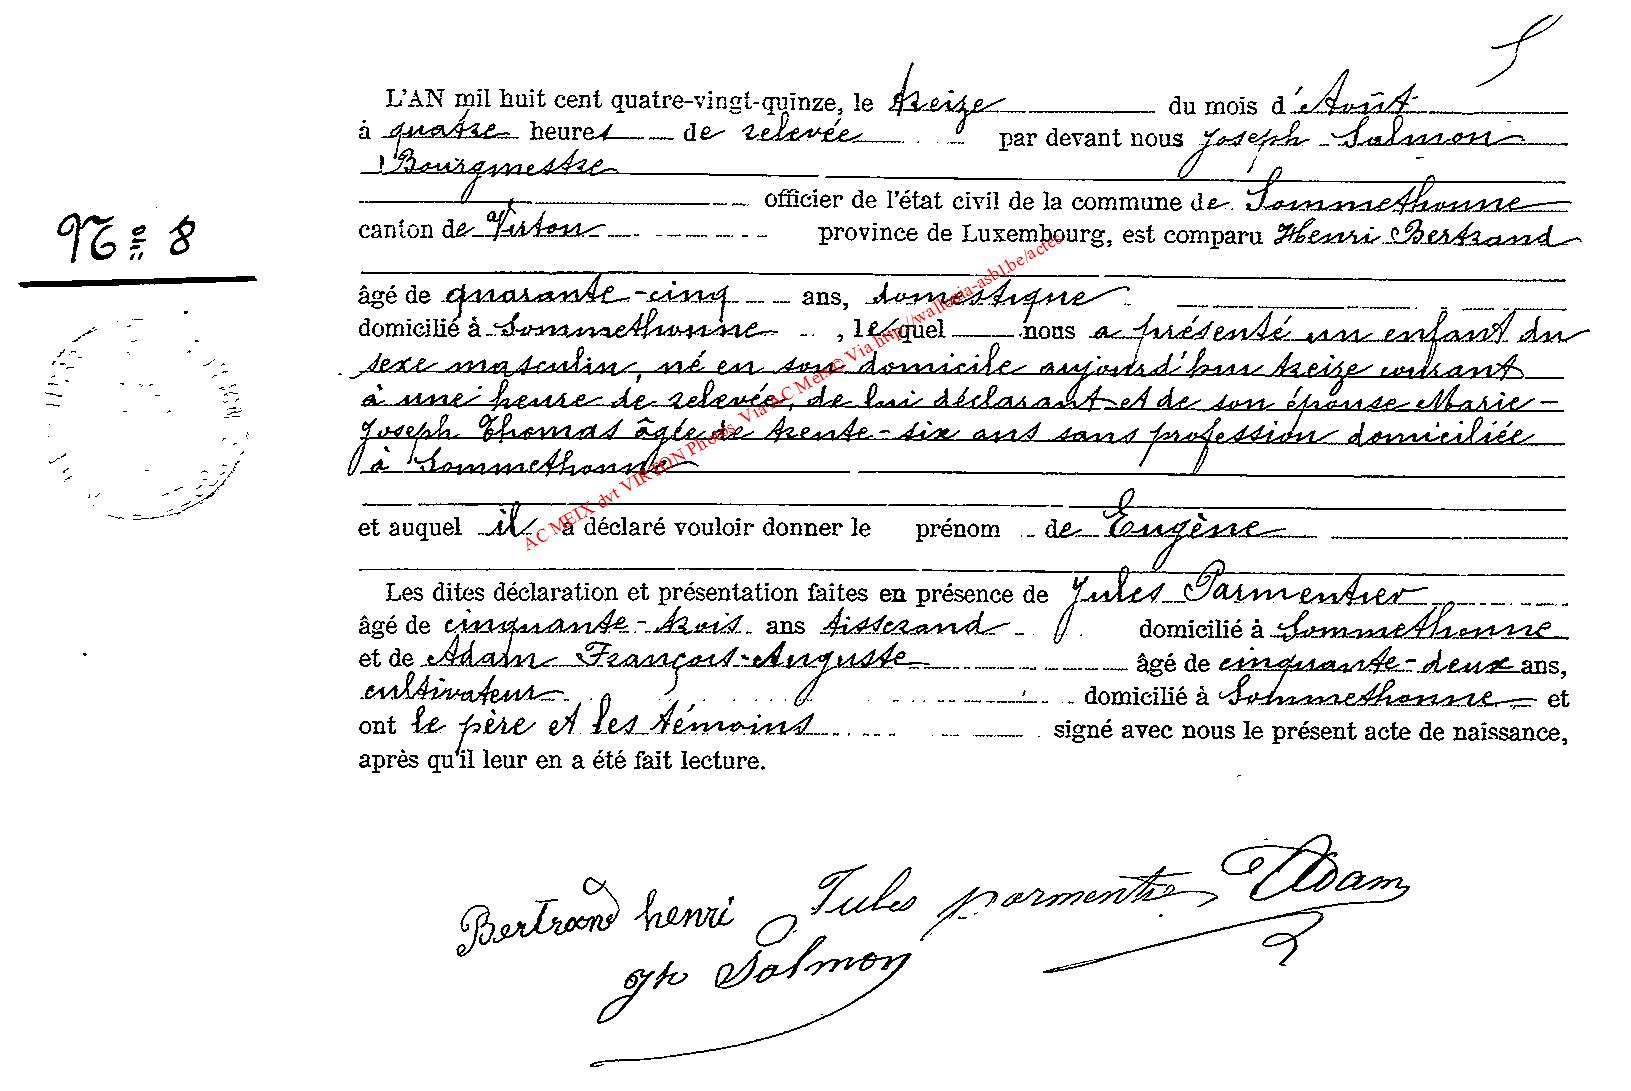 5
L'AN mil huit cent quatre-vingt-quinze, le treize du mois d'Août
à quatre heures de relevée par devant nous Joseph Salmon
Bourgmestre
officier de l'état civil de la commune de Sommethonne
N° 8
canton de Virton province de Luxembourg, est comparu Henri Bertrand
âgé de quarante-cinq ans, domestique
domicilié à Sommethonne, lequel nous a présenté un enfant du
sexe masculin, né en son domicile aujourd'hui treize courant
à une heure de relevée, de lui déclarant et de son épouse Marie-
Joseph Thomas âgée de trente-six ans sans profession domiciliée
à Sommethonne
et auquel il a déclaré vouloir donner le prénom de Eugène
Les dites déclaration et présentation faites en présence de Jules Parmentier
âgé de cinquante-trois ans tisserand domicilié à Sommethonne
et de Adam François-Auguste âgé de cinquante-deux ans,
cultivateur domicilié à Sommethonne et
ont le père et les témoins signé avec nous le présent acte de naissance,
après qu'il leur en a été fait lecture.
Bertrand henri Jules parmentier Adam
Jph Salmon
AC MEIX dvt VIRTON Photos Via AC Meix© Via http://wallonia-asbl.be/actes